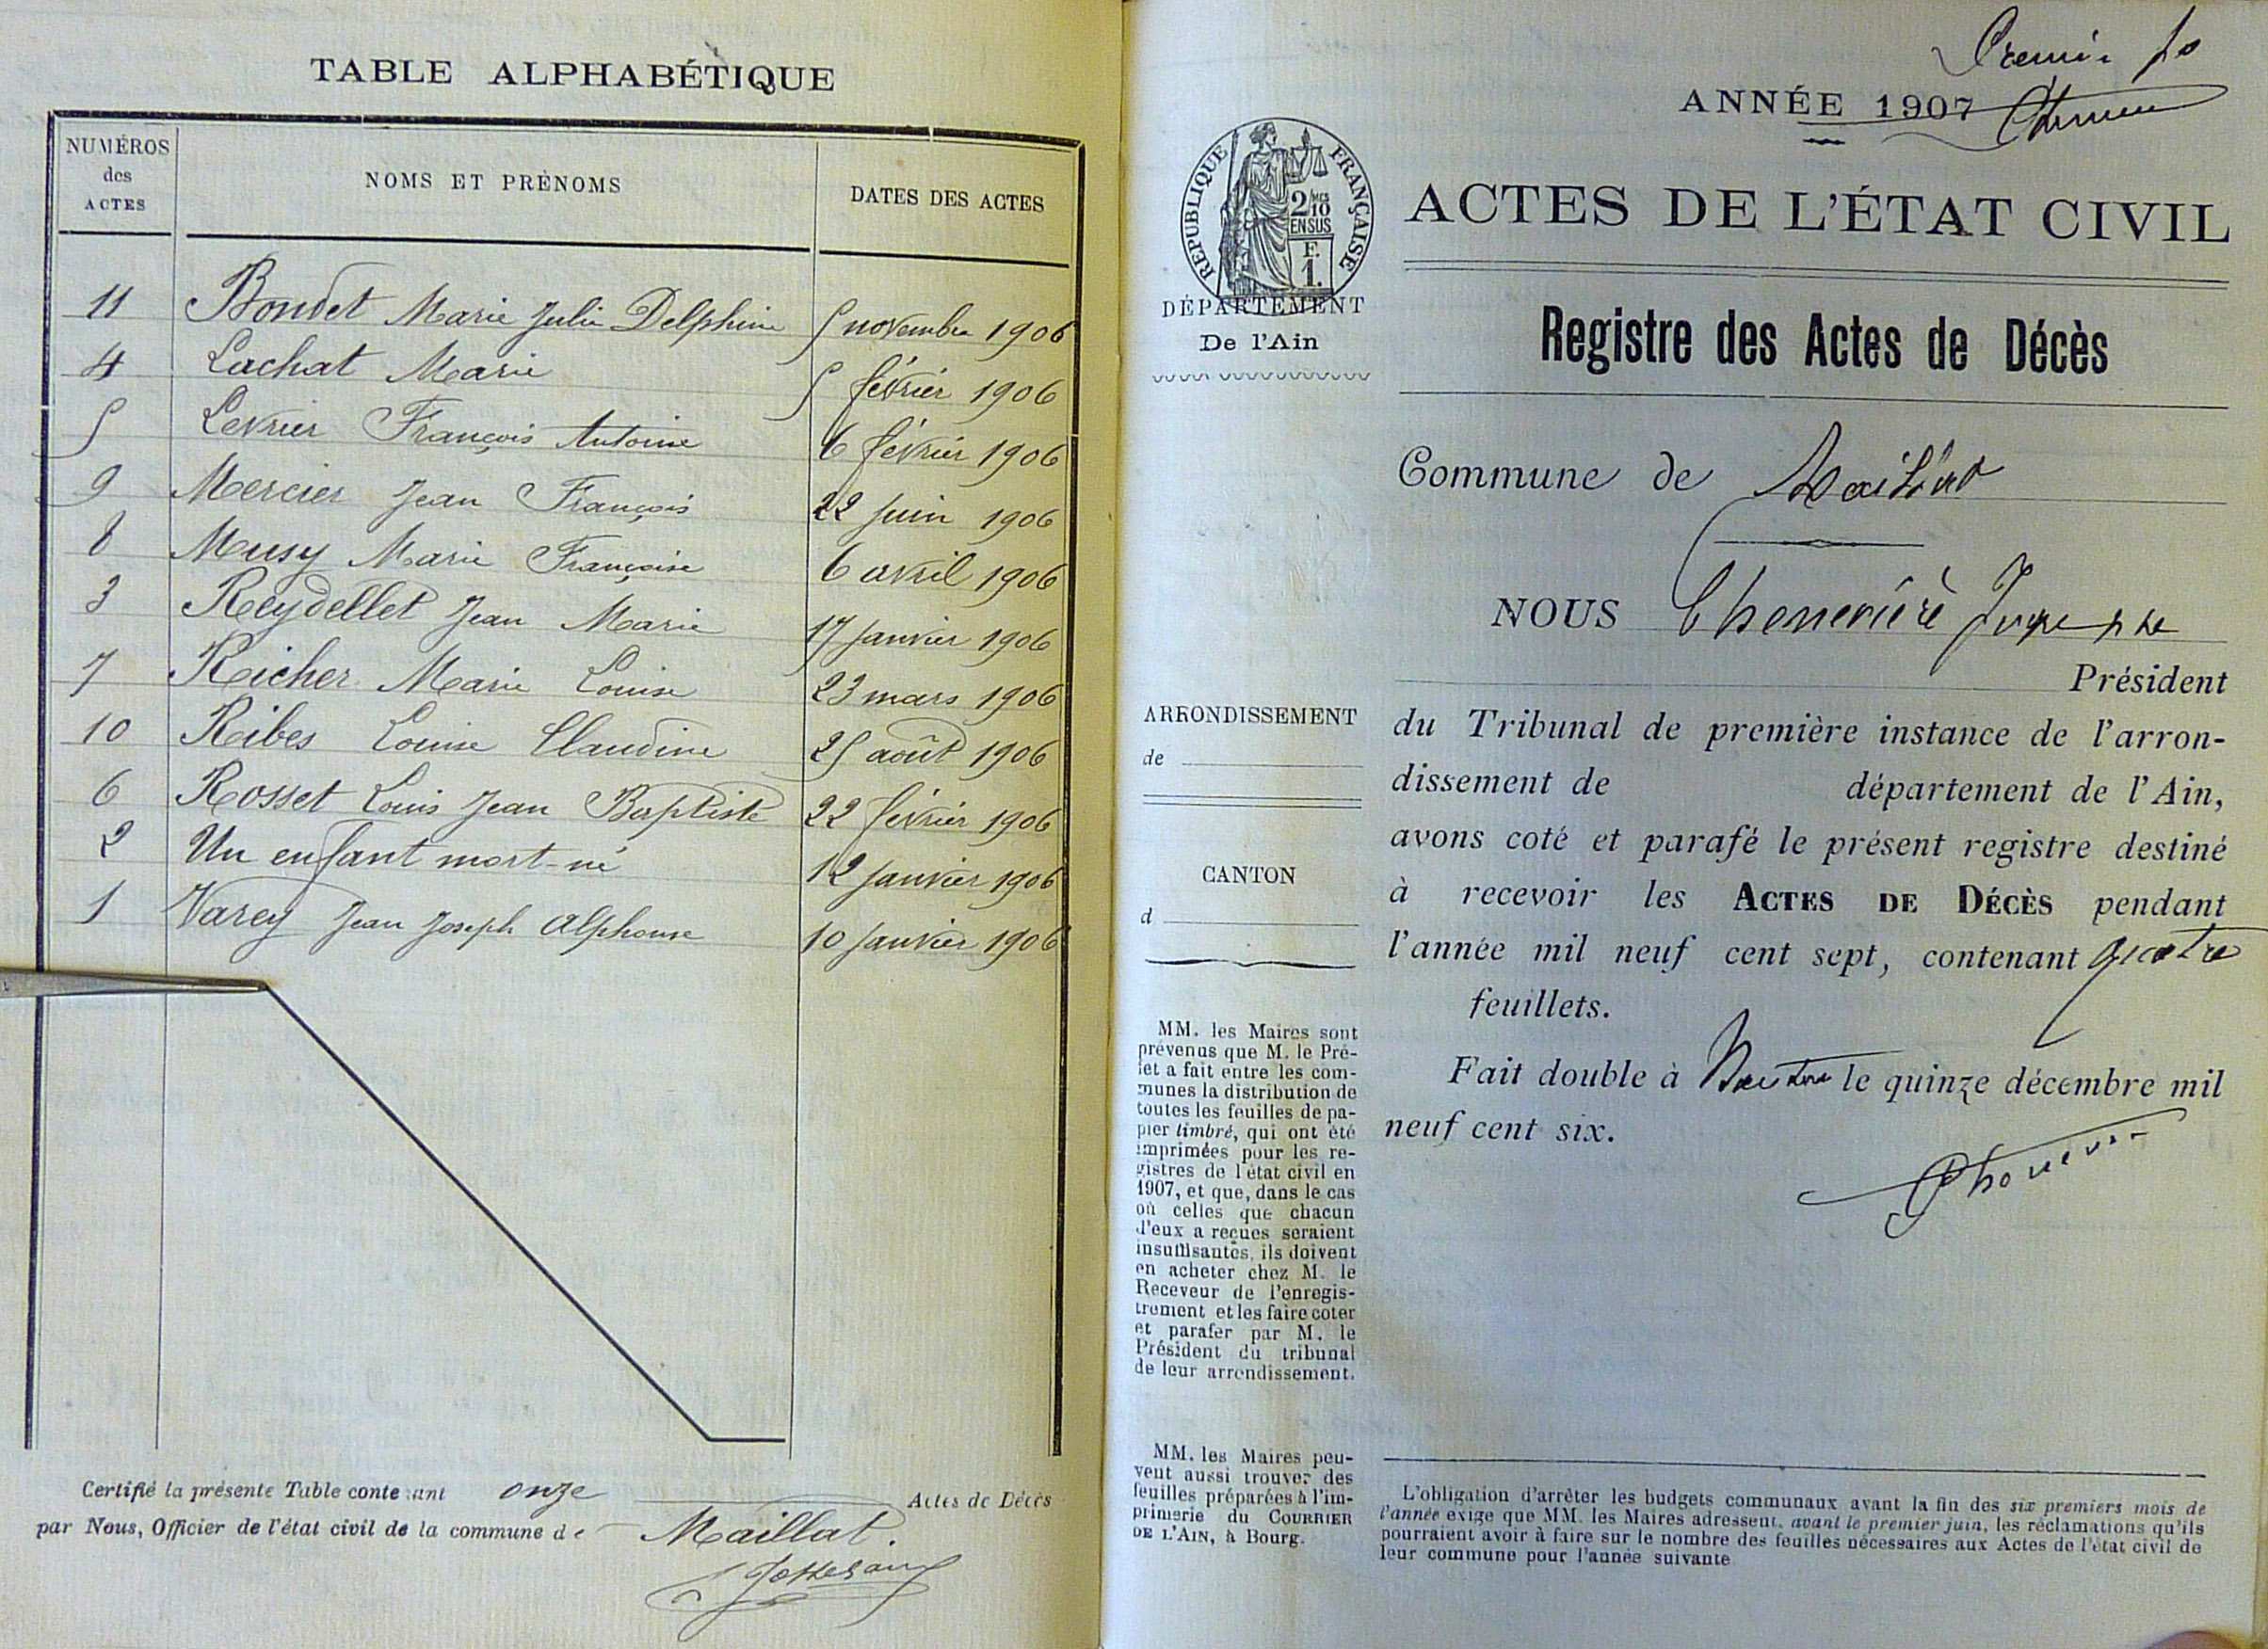 TABLE ALPHABÉTIQUE
NUMÉROS
des
ACTES
NOMS ET PRÉNOMS
DATES DES ACTES
11 Bondet Marie Julie Delphine 5 novembre 1906
4 Lachat Marie 5 février 1906
5 Levrier François Antoine 6 février 1906
9 Mercier Jean François 22 juin 1906
8 Musy Marie Françoise 6 avril 1906
3 Reydellet Jean Marie 17 janvier 1906
7 Richer Marie Louise 23 mars 1906
10 Ribes Louise Claudine 25 août 1906
6 Rosset Louis Jean Baptiste 22 février 1906
2 Un enfant mort-né 12 janvier 1906
1 Varey Jean Joseph Alphonse 10 janvier 1906
Certifié la présente Table contenant onze Actes de Décès
par Nous, Officier de l'état civil de la commune de Maillat.
Josserand
Premier fo
ANNÉE 1907
RÉPUBLIQUE FRANÇAISE
2/10
EN SUS
F.
1.
ACTES DE L'ÉTAT CIVIL
DÉPARTEMENT
De l'Ain
Registre des Actes de Décès
Commune de Maillat
NOUS
Président
du Tribunal de première instance de l'arron-
dissement de département de l'Ain,
avons coté et parafé le présent registre destiné
à recevoir les ACTES DE DÉCÈS pendant
l'année mil neuf cent sept, contenant quatre
feuillets.
Fait double à Nantua le quinze décembre mil
neuf cent six.
ARRONDISSEMENT
de
CANTON
d
MM. les Maires sont
prévenus que M. le Pré-
fet a fait entre les com-
munes la distribution de
toutes les feuilles de pa-
pier timbré, qui ont été
imprimées pour les re-
gistres de l'état civil en
1907, et que, dans le cas
où celles que chacun
d'eux a reçues seraient
insuffisantes, ils doivent
en acheter chez M. le
Receveur de l'enregis-
trement et les faire coter
et parafer par M. le
Président du tribunal
de leur arrondissement.
MM. les Maires peu-
vent aussi trouver des
feuilles préparées à l'im-
primerie du COURRIER
DE L'AIN, à Bourg.
L'obligation d'arrêter les budgets communaux avant la fin des six premiers mois de
l'année exige que MM. les Maires adressent, avant le premier juin, les réclamations qu'ils
pourraient avoir à faire sur le nombre des feuilles nécessaires aux Actes de l'état civil de
leur commune pour l'année suivante